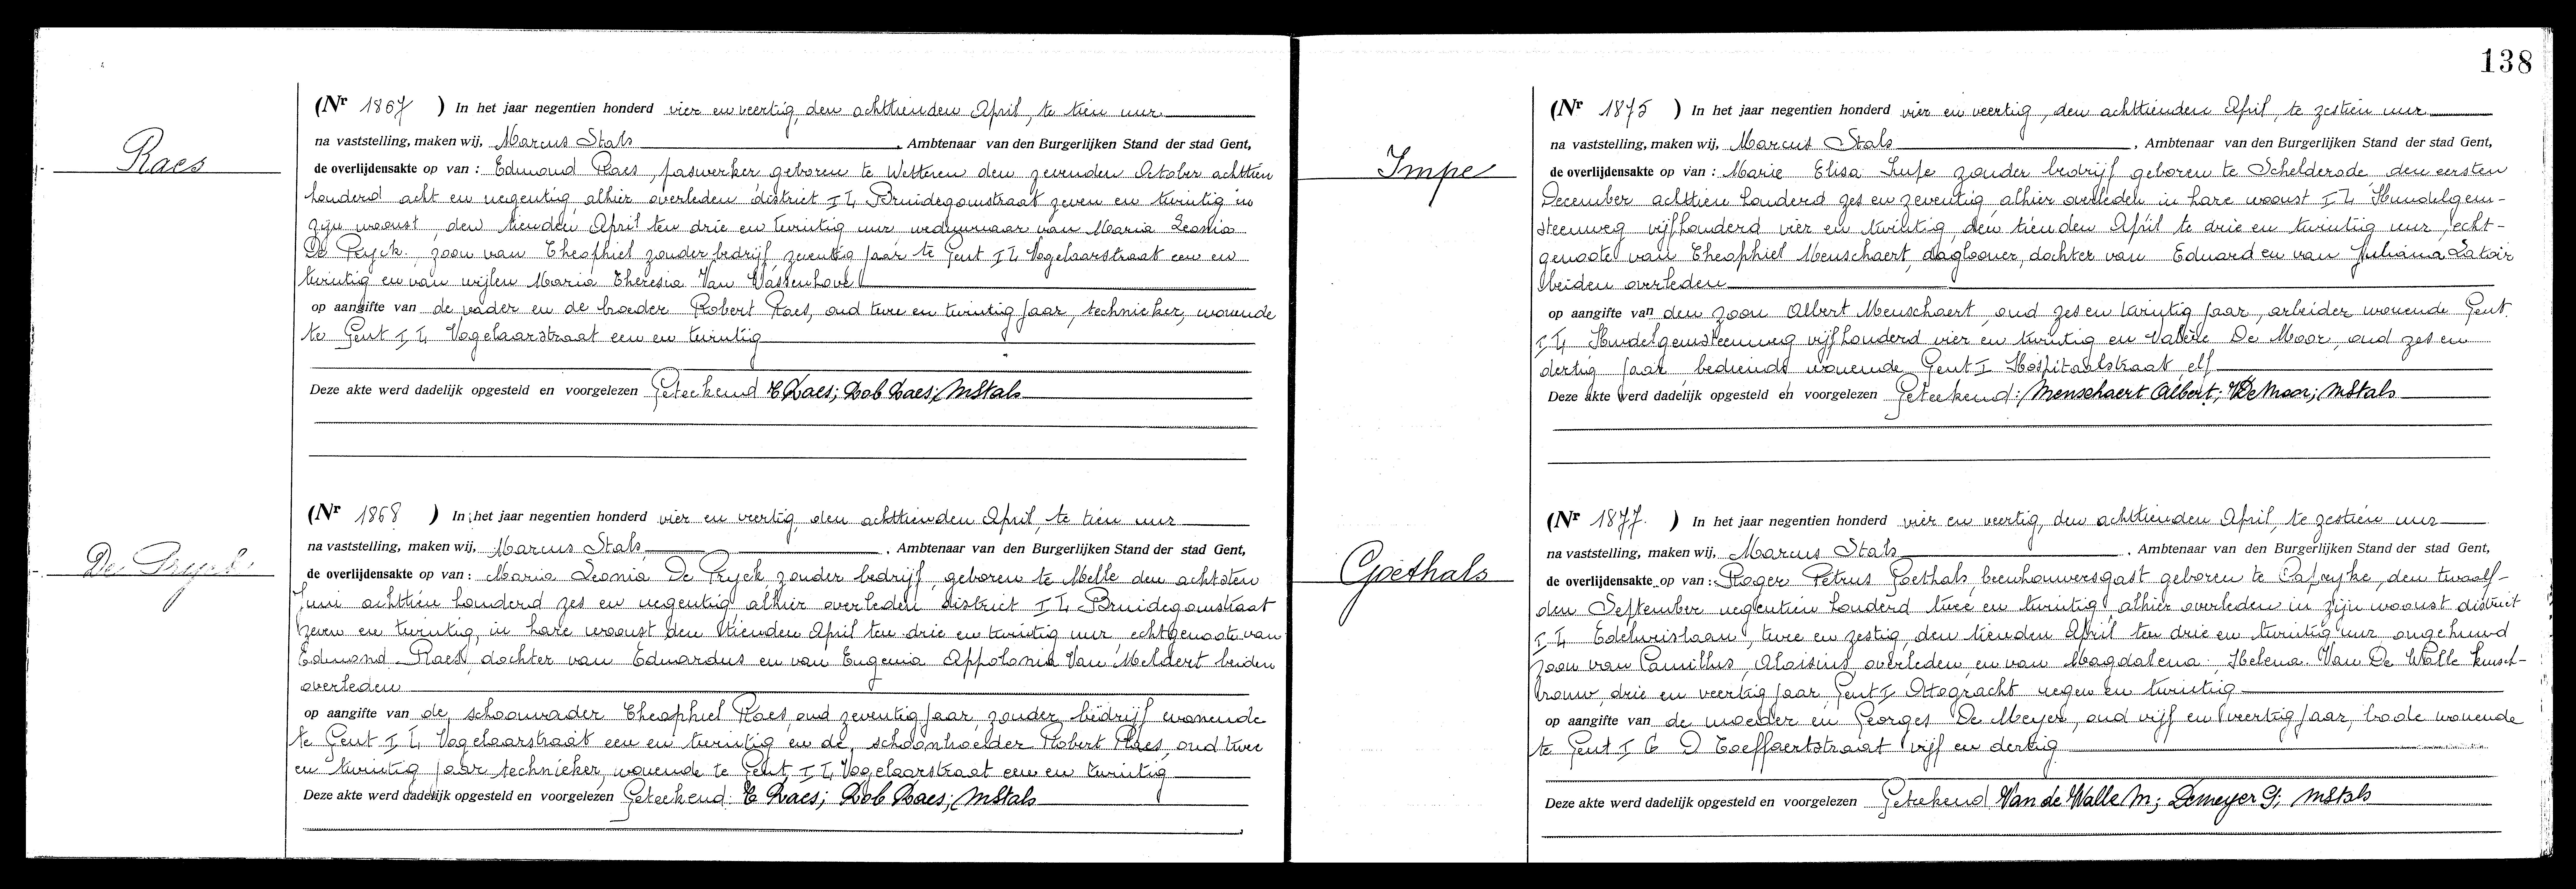 Raes
(Nr 1867 ) In het jaar negentien honderd vier en veertig, den achttienden April, te tien uur
na vaststelling, maken wij, Marcus Stals , Ambtenaar van den Burgerlijken Stand der stad Gent,
de overlijdensakte op van : Edmond Raes, paswerker geboren te Wetteren den zevenden October achttien
honderd acht en negentig, alhier overleden district I L Bruidegomstraat zeven en twintig in
zijn woonst, den tienden April ten drie en twintig uur weduwnaar van Maria Leonia
De Pryck. zoon van Theophiel zonder bedrijf, zeventig jaar te Gent I L Vogelaarstraat een en
twintig en van wijlen Maria Theresia Van Vassenhove
op aangifte van de vader en de broeder Robert Raes, oud twee en twintig jaar, technieker, wonende
te Gent I L Vogelaarstraat een en twintig
Deze akte werd dadelijk opgesteld en voorgelezen Geteekend E Raes; Rob Raes; MStals
De Pryck
(Nr 1868 ) In het jaar negentien honderd vier en veertig, den achttienden April, te tien uur
na vaststelling, maken wij, Marcus Stals , Ambtenaar van den Burgerlijken Stand der stad Gent,
de overlijdensakte op van : Maria Leonia De Pryck, zonder bedrijf, geboren te Melle den achtsten
Juni achttien honderd zes en negentig alhier overleden district I L Bruidegomstraat
zeven en twintig, in hare woonst den tienden April ten drie en twintig uur, echtgenoote van
Edmond Raes, dochter van Eduardus en van Eugenia Appolonia Van Meldert beiden
overleden
op aangifte van de schoonvader Theophiel Raes, oud zeventig jaar, zonder bedrijf wonende
te Gent I L Vogelaarstraat een en twintig en de schoonbroeder Robert Raes, oud twee
en twintig jaar technieker, wonende te Gent I L Vogelaarstraat een en twintig
Deze akte werd dadelijk opgesteld en voorgelezen Geteekend: E Raes; Rob Raes; MStals
138
Impe
(Nr 1875 ) In het jaar negentien honderd vier en veertig, den achttienden April, te zestien uur
na vaststelling, maken wij, Marcus Stals , Ambtenaar van den Burgerlijken Stand der stad Gent,
de overlijdensakte op van : Marie Elisa Impe zonder bedrijf geboren te Schelderode den eersten
December achttien honderd zes en zeventig, alhier overleden in hare woonst I L Hundelgem-
steenweg vijfhonderd vier en twintig, den tienden April te drie en twintig uur, echt-
genoote van Theophiel Menschaert, daglooner, dochter van Eduard en van Juliana Latoir
beiden overleden
op aangifte van den zoon Albert Menschaert, oud zes en twintig jaar, arbeider wonende Gent
I L Hundelgemsteenweg vijfhonderd vier en twintig en Valère De Moor, oud zes en
dertig jaar, bediende wonende Gent I Hospitaalstraat, elf
Deze akte werd dadelijk opgesteld en voorgelezen Geteekend: Menschaert Albert; VDeMoor; MStals
Goethals
(Nr 1877. ) In het jaar negentien honderd vier en veertig, den achttienden April, te zestien uur
na vaststelling, maken wij, Marcus Stals , Ambtenaar van den Burgerlijken Stand der stad Gent,
de overlijdensakte op van : Roger Petrus Goethals, beenhouwersgast geboren te Caprijke, den twaalf-
den September negentien honderd twee en twintig alhier overleden in zijn woonst district
I L Edelwijslaan, twee en zestig, den tienden April ten drie en twintig uur ongehuwd
zoon van Camillus, Aloisius, overleden, en van Magdalena. Helena. Van De Walle kuisch-
vrouw, drie en veertig jaar, Gent I Ottogracht negen en twintig
op aangifte van de moeder en Georges De Meyer, oud vijf en veertig jaar, bode wonende
te Gent I C D Toeffaertstraat vijf en dertig
Deze akte werd dadelijk opgesteld en voorgelezen Geteekend Van de Walle M; Demeyer G; MStals